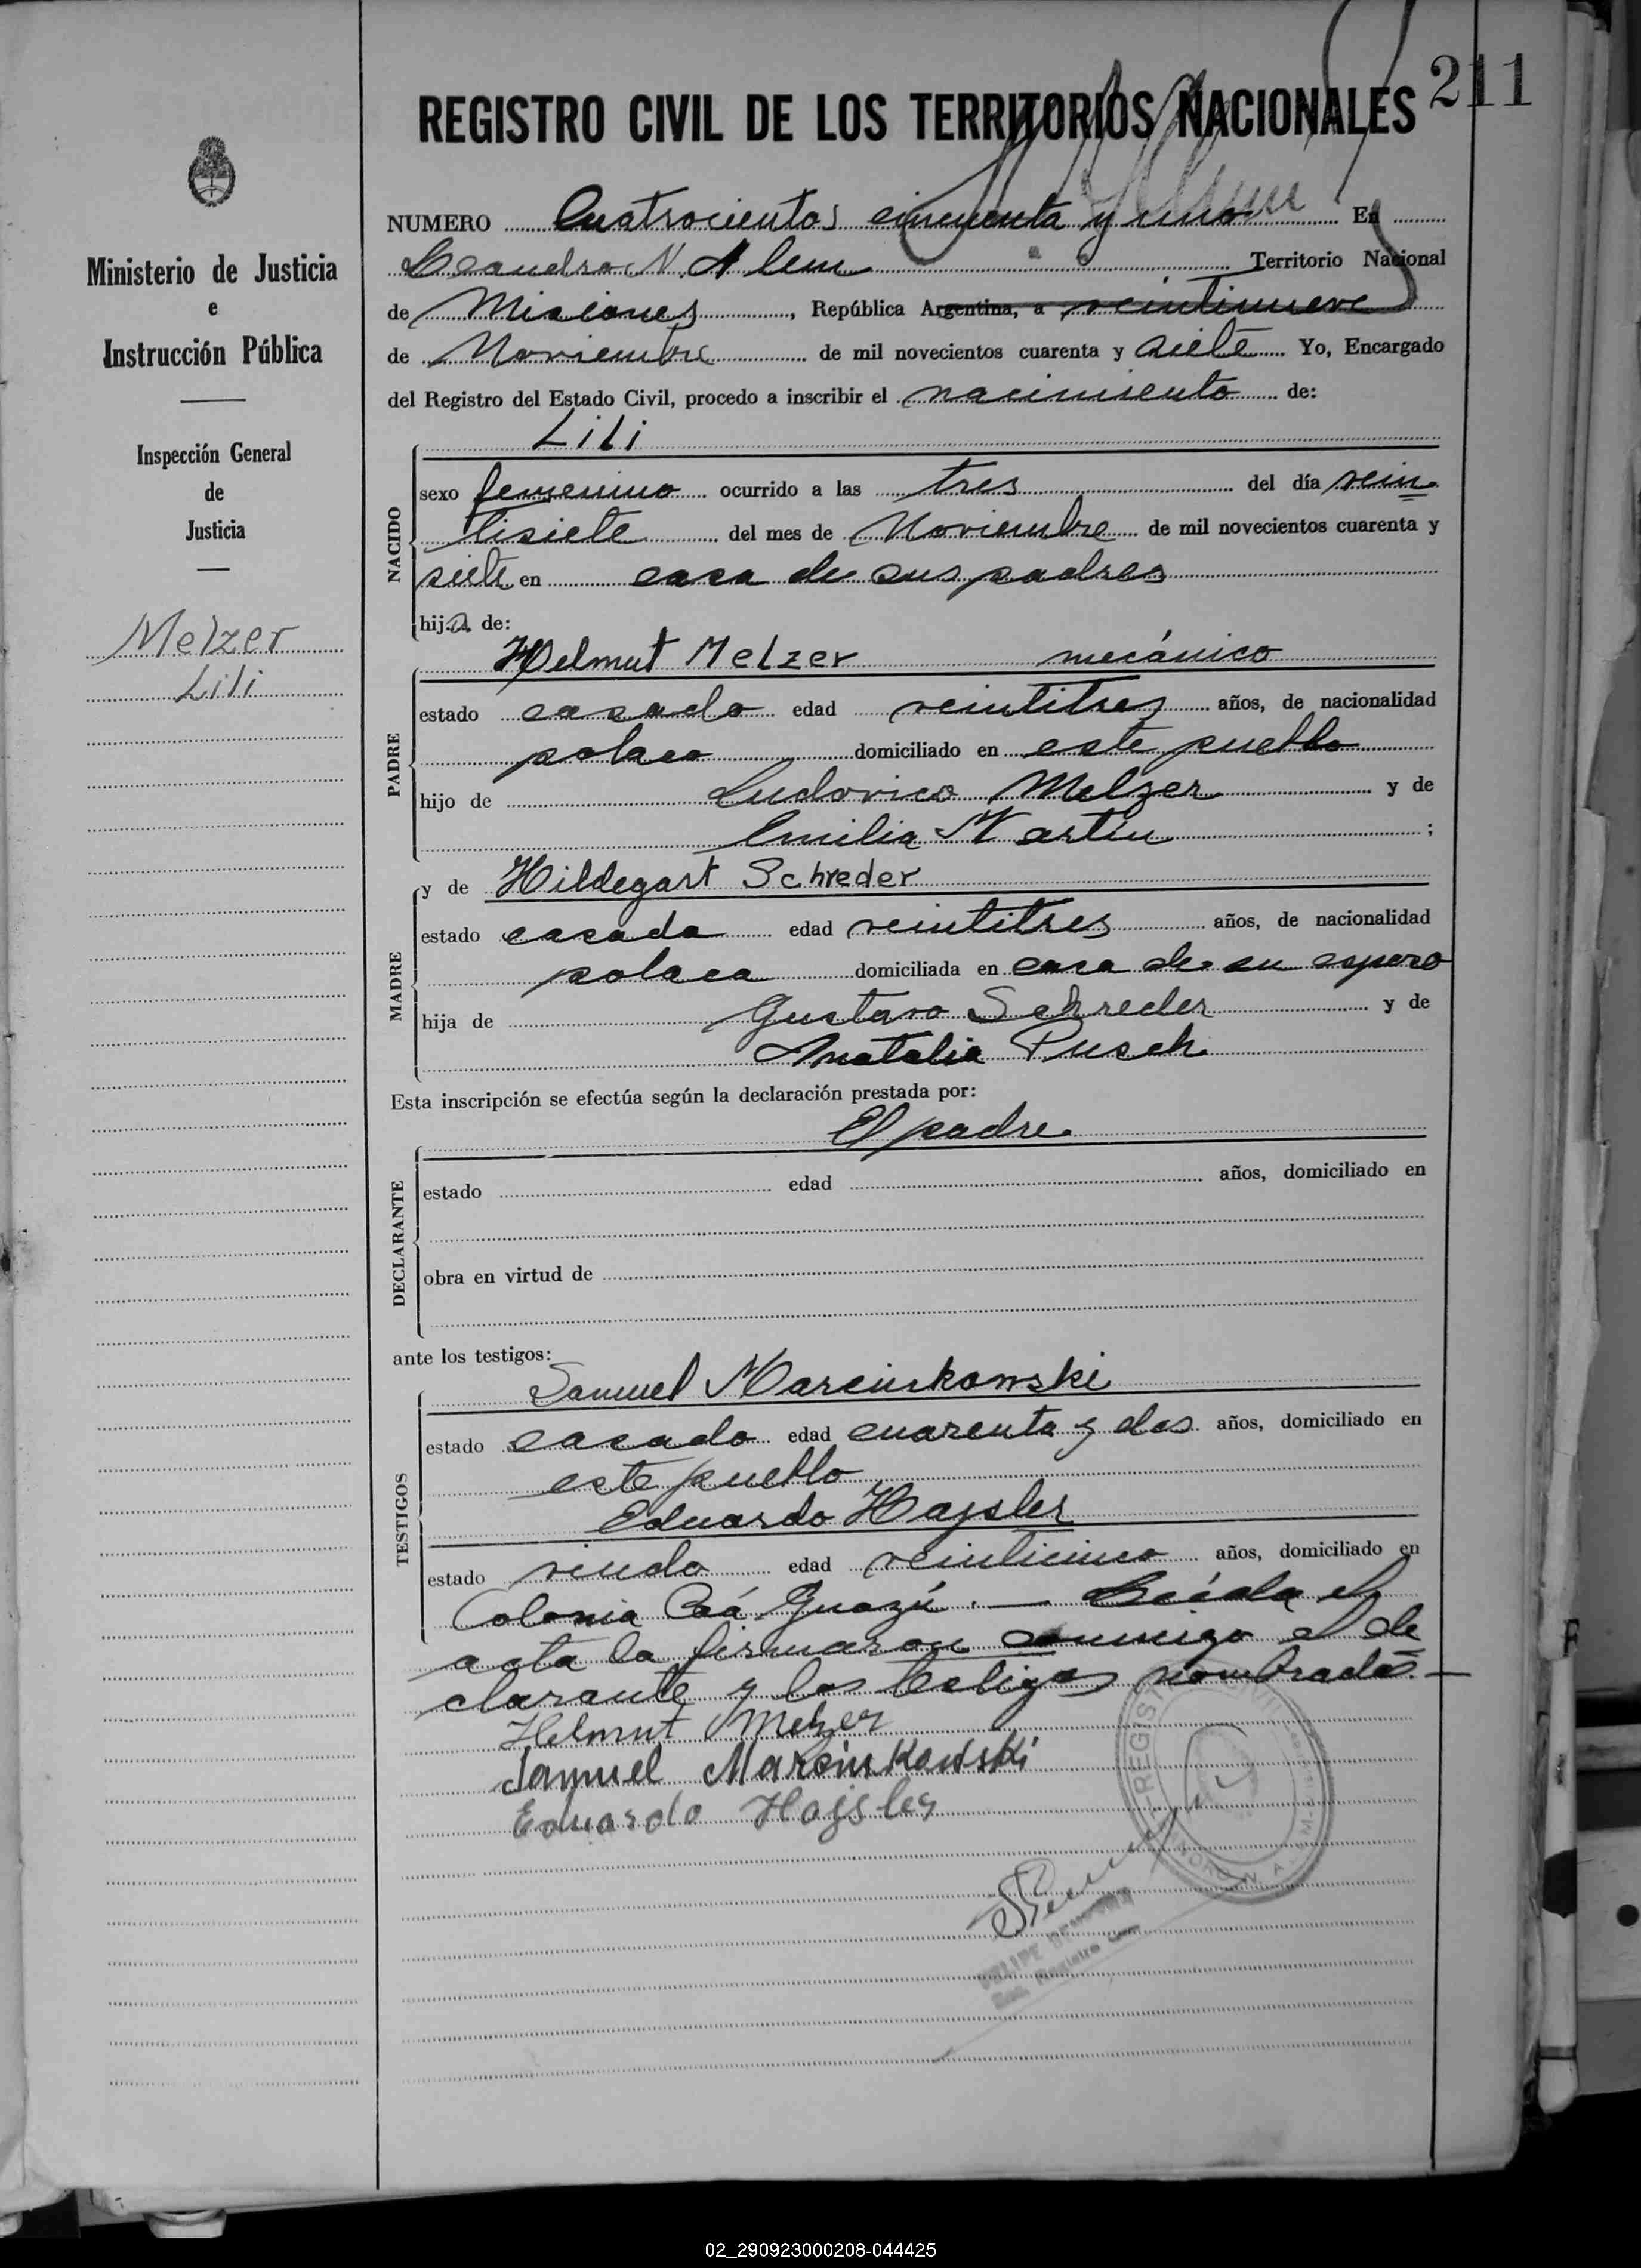 211
REGISTRO CIVIL DE LOS TERRITORIOS NACIONALES
NUMERO Cuatrocientos cincuenta y uno En
Leandro N. Alem Territorio Nacional
de Misiones, República Argentina, a veintinueve
de Noviembre de mil novecientos cuarenta y siete Yo, Encargado
del Registro del Estado Civil, procedo a inscribir el nacimiento de:
Ministerio de Justicia
e
Instrucción Pública
Inspección General
de
Justicia
Melzer
Lili
NACIDO
Lili
sexo femenino ocurrido a las tres del día vein
tisiete del mes de Noviembre de mil novecientos cuarenta y
siete en casa de sus padres
hija de:
PADRE
Helmut Melzer mecánico
estado casado edad veintitres años, de nacionalidad
polaco domiciliado en este pueblo
hijo de Ludovico Melzer y de
Emilia Martin ;
MADRE
y de Hildegart Schreder
estado casada edad veintitres años, de nacionalidad
polaca domiciliada en casa de su esposo
hija de Gustavo Schreder y de
Natalia Pusch
Esta inscripción se efectúa según la declaración prestada por:
El padre
DECLARANTE
estado edad años, domiciliado en
obra en virtud de
ante los testigos:
TESTIGOS
Samuel Marcinkowski
estado casado edad cuarenta y dos años, domiciliado en
este pueblo
Eduardo Hajsler
estado viudo edad veinticinco años, domiciliado en
Colonia Caá Guazú. — Leída el
acta la firmaron conmigo el de
clarante y los testigos nombrados. —
Helmut Melzer
Samuel Marcinkowski
Eduardo Hajsler
02_290923000208-044425